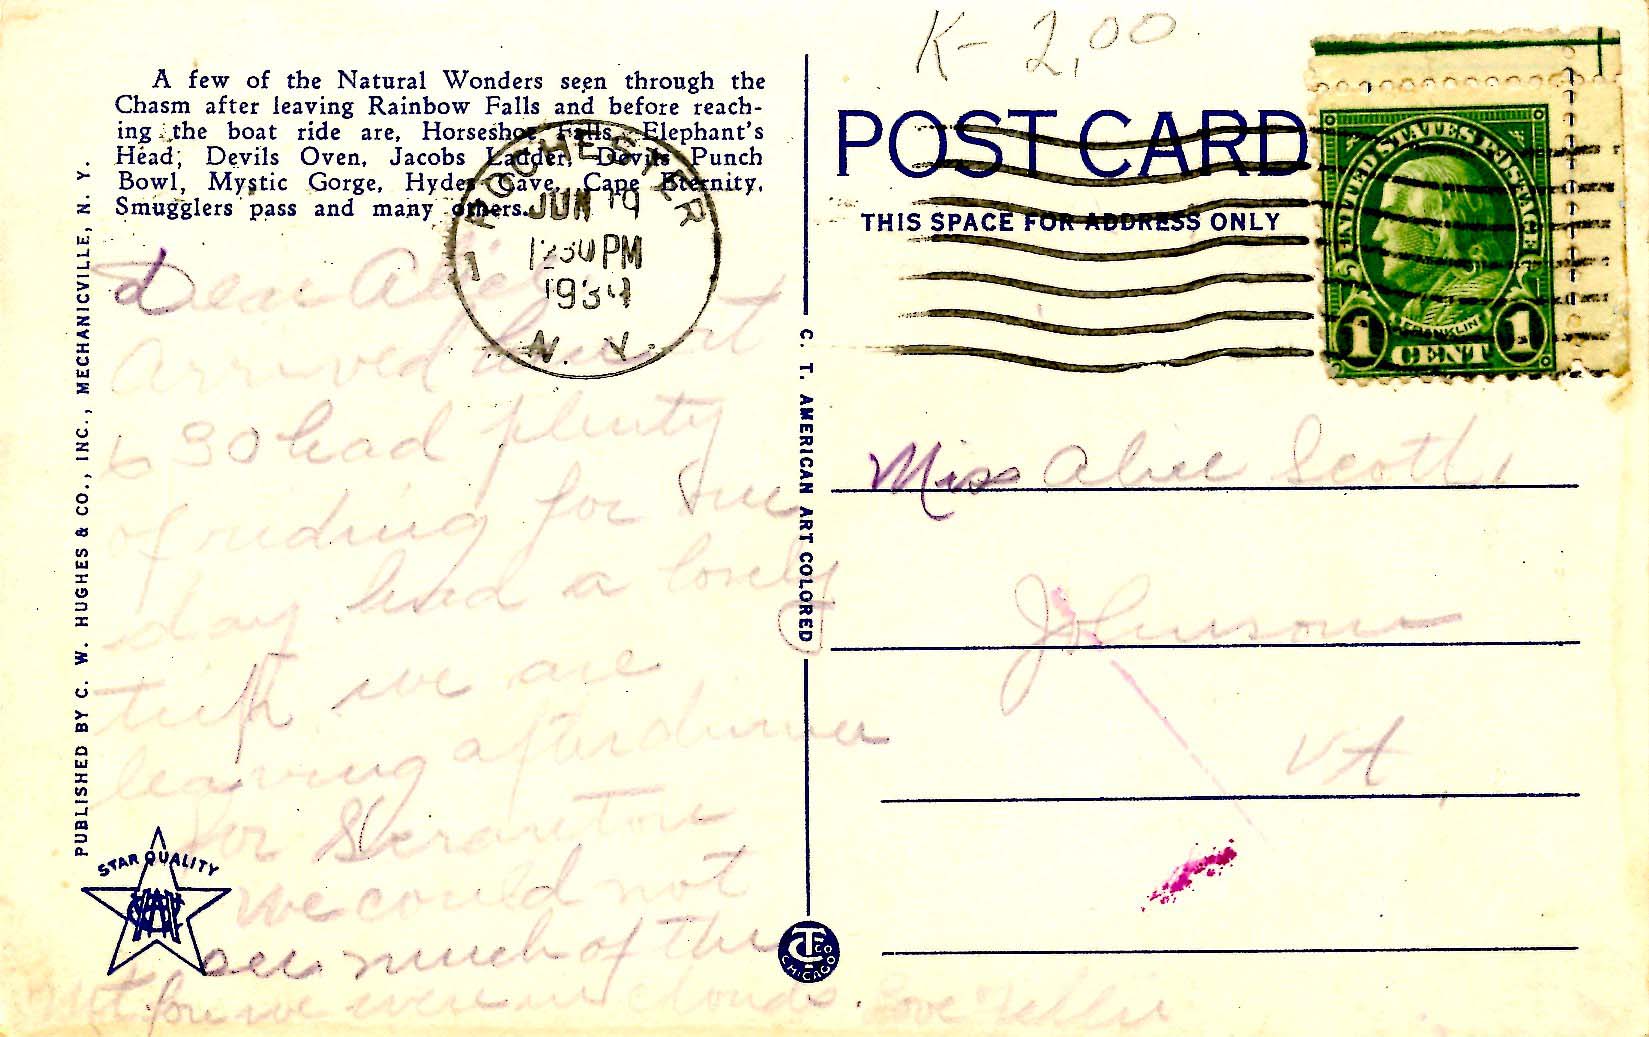 K- 2,00
A few of the Natural Wonders seen through the
Chasm after leaving Rainbow Falls and before reach-
ing the boat ride are, Horseshoe Falls, Elephant's
Head; Devils Oven, Jacobs Ladder, Devils Punch
Bowl, Mystic Gorge, Hydes Cave, Cape Eternity,
Smugglers pass and many others.
ROCHESTER
JUN 19
1230 PM
1934
N. Y.
1
Dear Alice
Arrived here at
6 30 had plenty
of riding for one
day had a lovely
trip we are
leaving after dinner
for Scranton
we could not
see much of the
Mt for we were in clouds. Love
PUBLISHED BY C. W. HUGHES & CO., INC., MECHANICVILLE, N. Y.
STAR QUALITY
C. T. AMERICAN ART COLORED
CT CO
CHICAGO
POST CARD
THIS SPACE FOR ADDRESS ONLY
UNITED STATES POSTAGE
FRANKLIN
1 CENT 1
Miss Alice Scott
Johnson
Vt